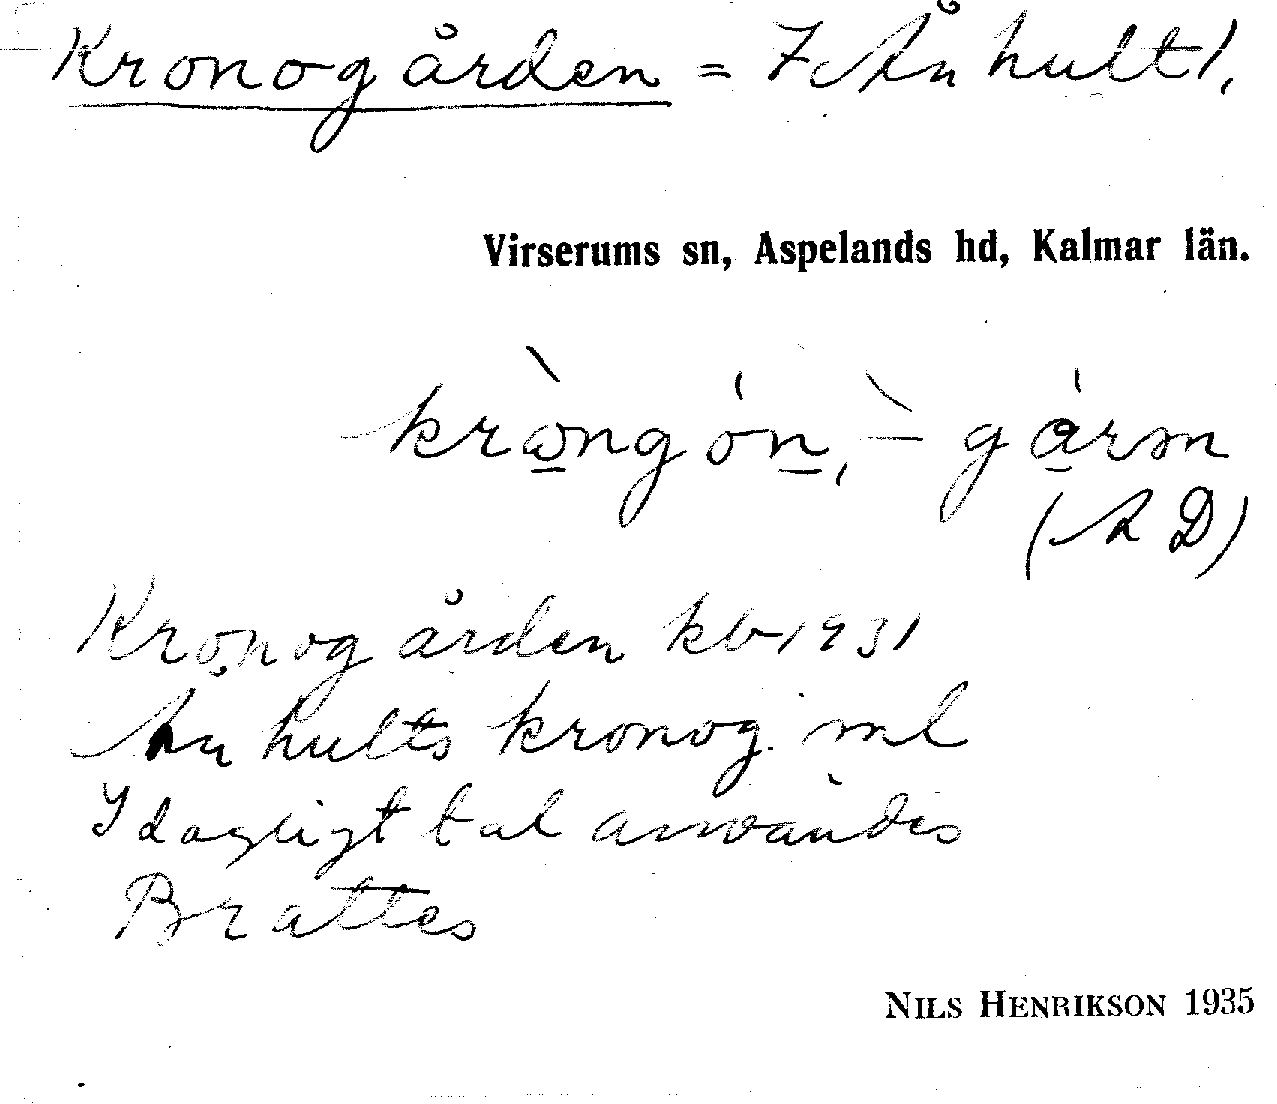 Kronogården = Z Ånhult 1,
Virserums sn, Aspelands hd, Kalmar län.
kròngón, - gårn
(A D)
Kronogården kb 1931
Anhults kronog. ml
I dagligt tal användes
Brattes
NILS HENRIKSON 1935